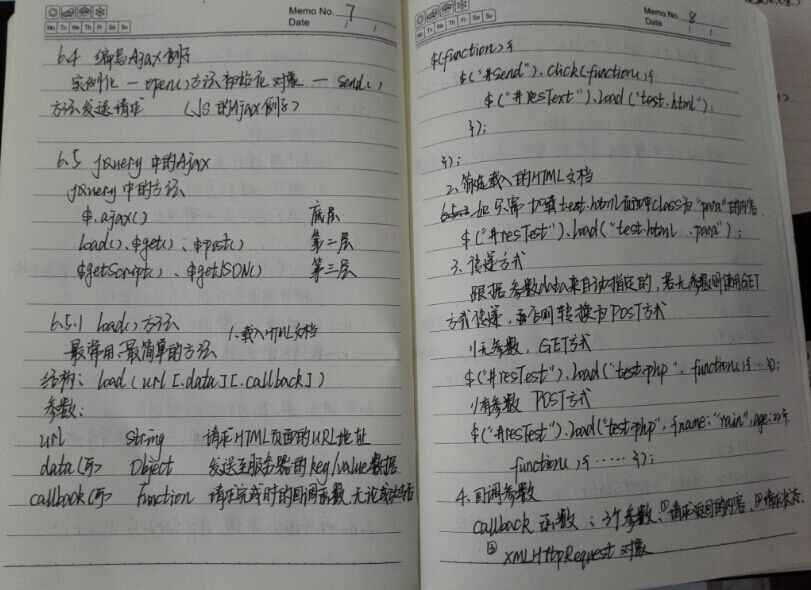 Memo No. 7
Mo Tu We Th Fr Sa Su
Date
6.4 编写Ajax例子
实例化 — open()方法初始化对象 — send()
方法发送请求 (JS的Ajax例子)
6.5 jQuery中的Ajax
jQuery中的方法
$.ajax() 底层
load()、$get()、$post() 第二层
$getScript()、$getJSON() 第三层
6.5.1 load()方法 1.载入HTML文档
最常用、最简单的方法
结构: load(url[.data][.callback])
参数:
url String 请求HTML页面的URL地址
data(可) Object 发送至服务器的key/value数据
callback(可) Function 请求完成时的回调函数,无论成功与否
Memo No. 8
Mo Tu We Th Fr Sa Su
Date
$(function(){
$("#send").click(function(){
$("#resText").load("test.html");
});
});
2. 筛选载入的HTML文档
如只需加载test.html页面中class为"para"的内容
$("#resTest").load("test.html .para");
3. 传递方式
跟据参数data来自动指定的,若无参数则使用GET
方式传递,否则转换为POST方式
1)无参数,GET方式
$("#resTest").load("test.php", function(){…});
1)有参数 POST方式
$("#resTest").load("test.php", {name:"rain",age:22},
function(){……});
4. 回调参数
callback函数:3个参数、①请求返回的内容、②请求状态、
③XMLHttpRequest对象